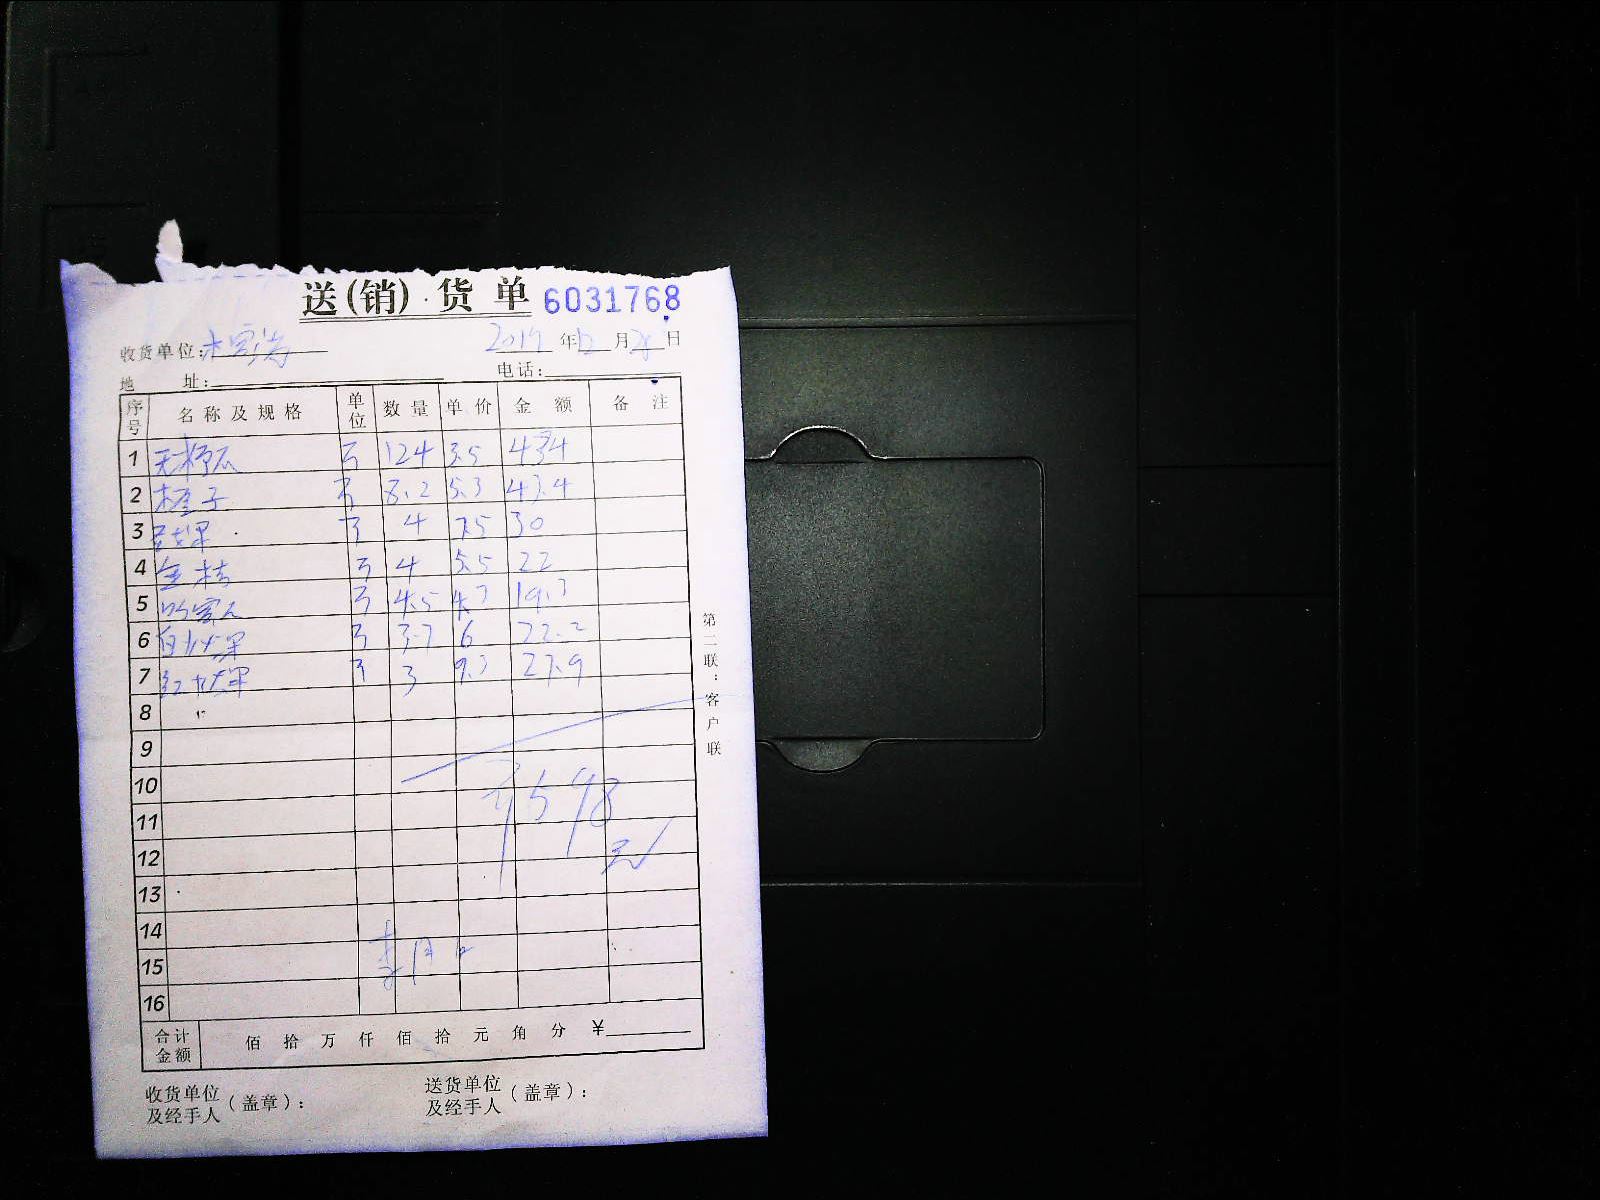 送(销)货单 6031768
收货单位: 2019年12月28日
地 址: 电话:
序号 名称及规格 单位 数量 单价 金额 备注
1 斤 124 3.5 434
2 橙子 斤 8.2 5.3 43.4
3 苹果 斤 4 7.5 30
4 金桔 斤 4 5.5 22
5 斤 4.5 4.3 19.3
6 斤 3.7 6 22.2
7 斤 3 9.3 27.9
8
9
10
11 598
12 元
13
14
15 李
16
合计金额 佰 拾 万 仟 佰 拾 元 角 分 ¥
收货单位及经手人(盖章): 送货单位及经手人(盖章):
第二联:客户联